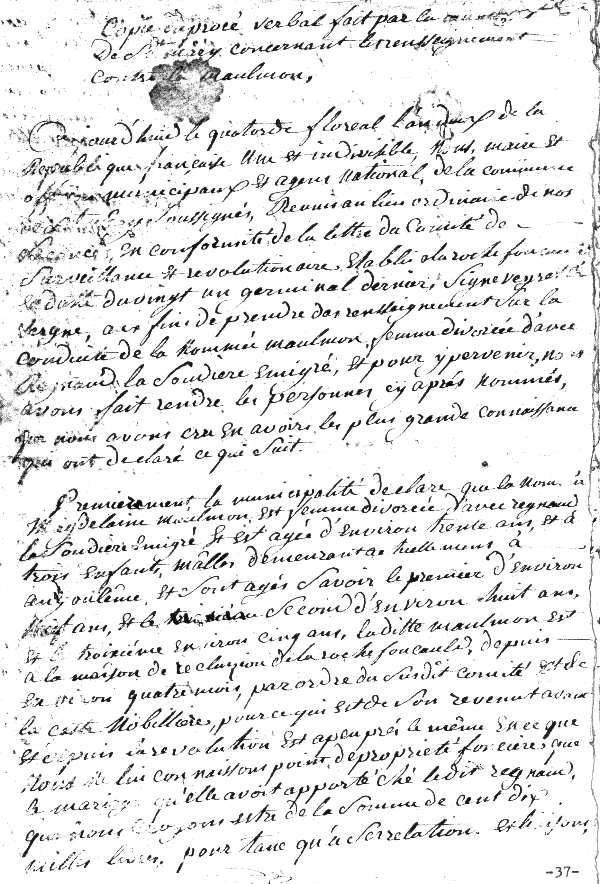 Copie du procé verbal fait par la
De St concernant le renseignement
contre la maulmon,
aujourd'huid le quatorde floreal l'an deux de la
Republique française une et indivisible, Nous, maire et
officiers municipaux et agent national, de la commune
soussignés, Reunis au lieu ordinaire de nos
seances, En conformité de la lettre du Comité de
Surveillance et revolutionaire, Etabli a laroche foucau
en date du vingt un germinal dernier, Signe
aux fins de prendre des renseignement sur la
conduite de la Nommée maulmon, femme divorcée d'avec
Regnaud la Soudiere Emigré, et pour y pervenir, nous
avons fait rendre les personnes cy aprés nommés,
que nous avons cru En avoirs les plus grande connaissance
qui ont declaré ce qui suit.
Premierement, la municipalité declare que la Nom
Magdelaine maulmon, est femme divorcée d'avec regnaud
la Soudiere Emigré et est agée d'Environ trente ans, et à
trois Enfants, mâlles demeurant actuellement à
angoulême, et sont agés Savoir le premier d'environ
ans, et le second d'Environ huit ans,
Et le troixiéme environ cinq ans, laditte maulmon est
a la maison de reclusion de la roche foucauld, depuis
Environ quatre mois, par ordre du susdit comité et de
la caste Nobilliere, pour ce qui est de son revenut avant
et depuis la revolution est apeuprés le même En ce que
Nous ne lui connaissons point de propriété fonciere, que
le mariage qu'elle avoit apporté ché ledit regnaud,
que nous croyons estre de la somme de cent dix
milles livres, pour tant qu'a Ses relation. et liaisons
-37-